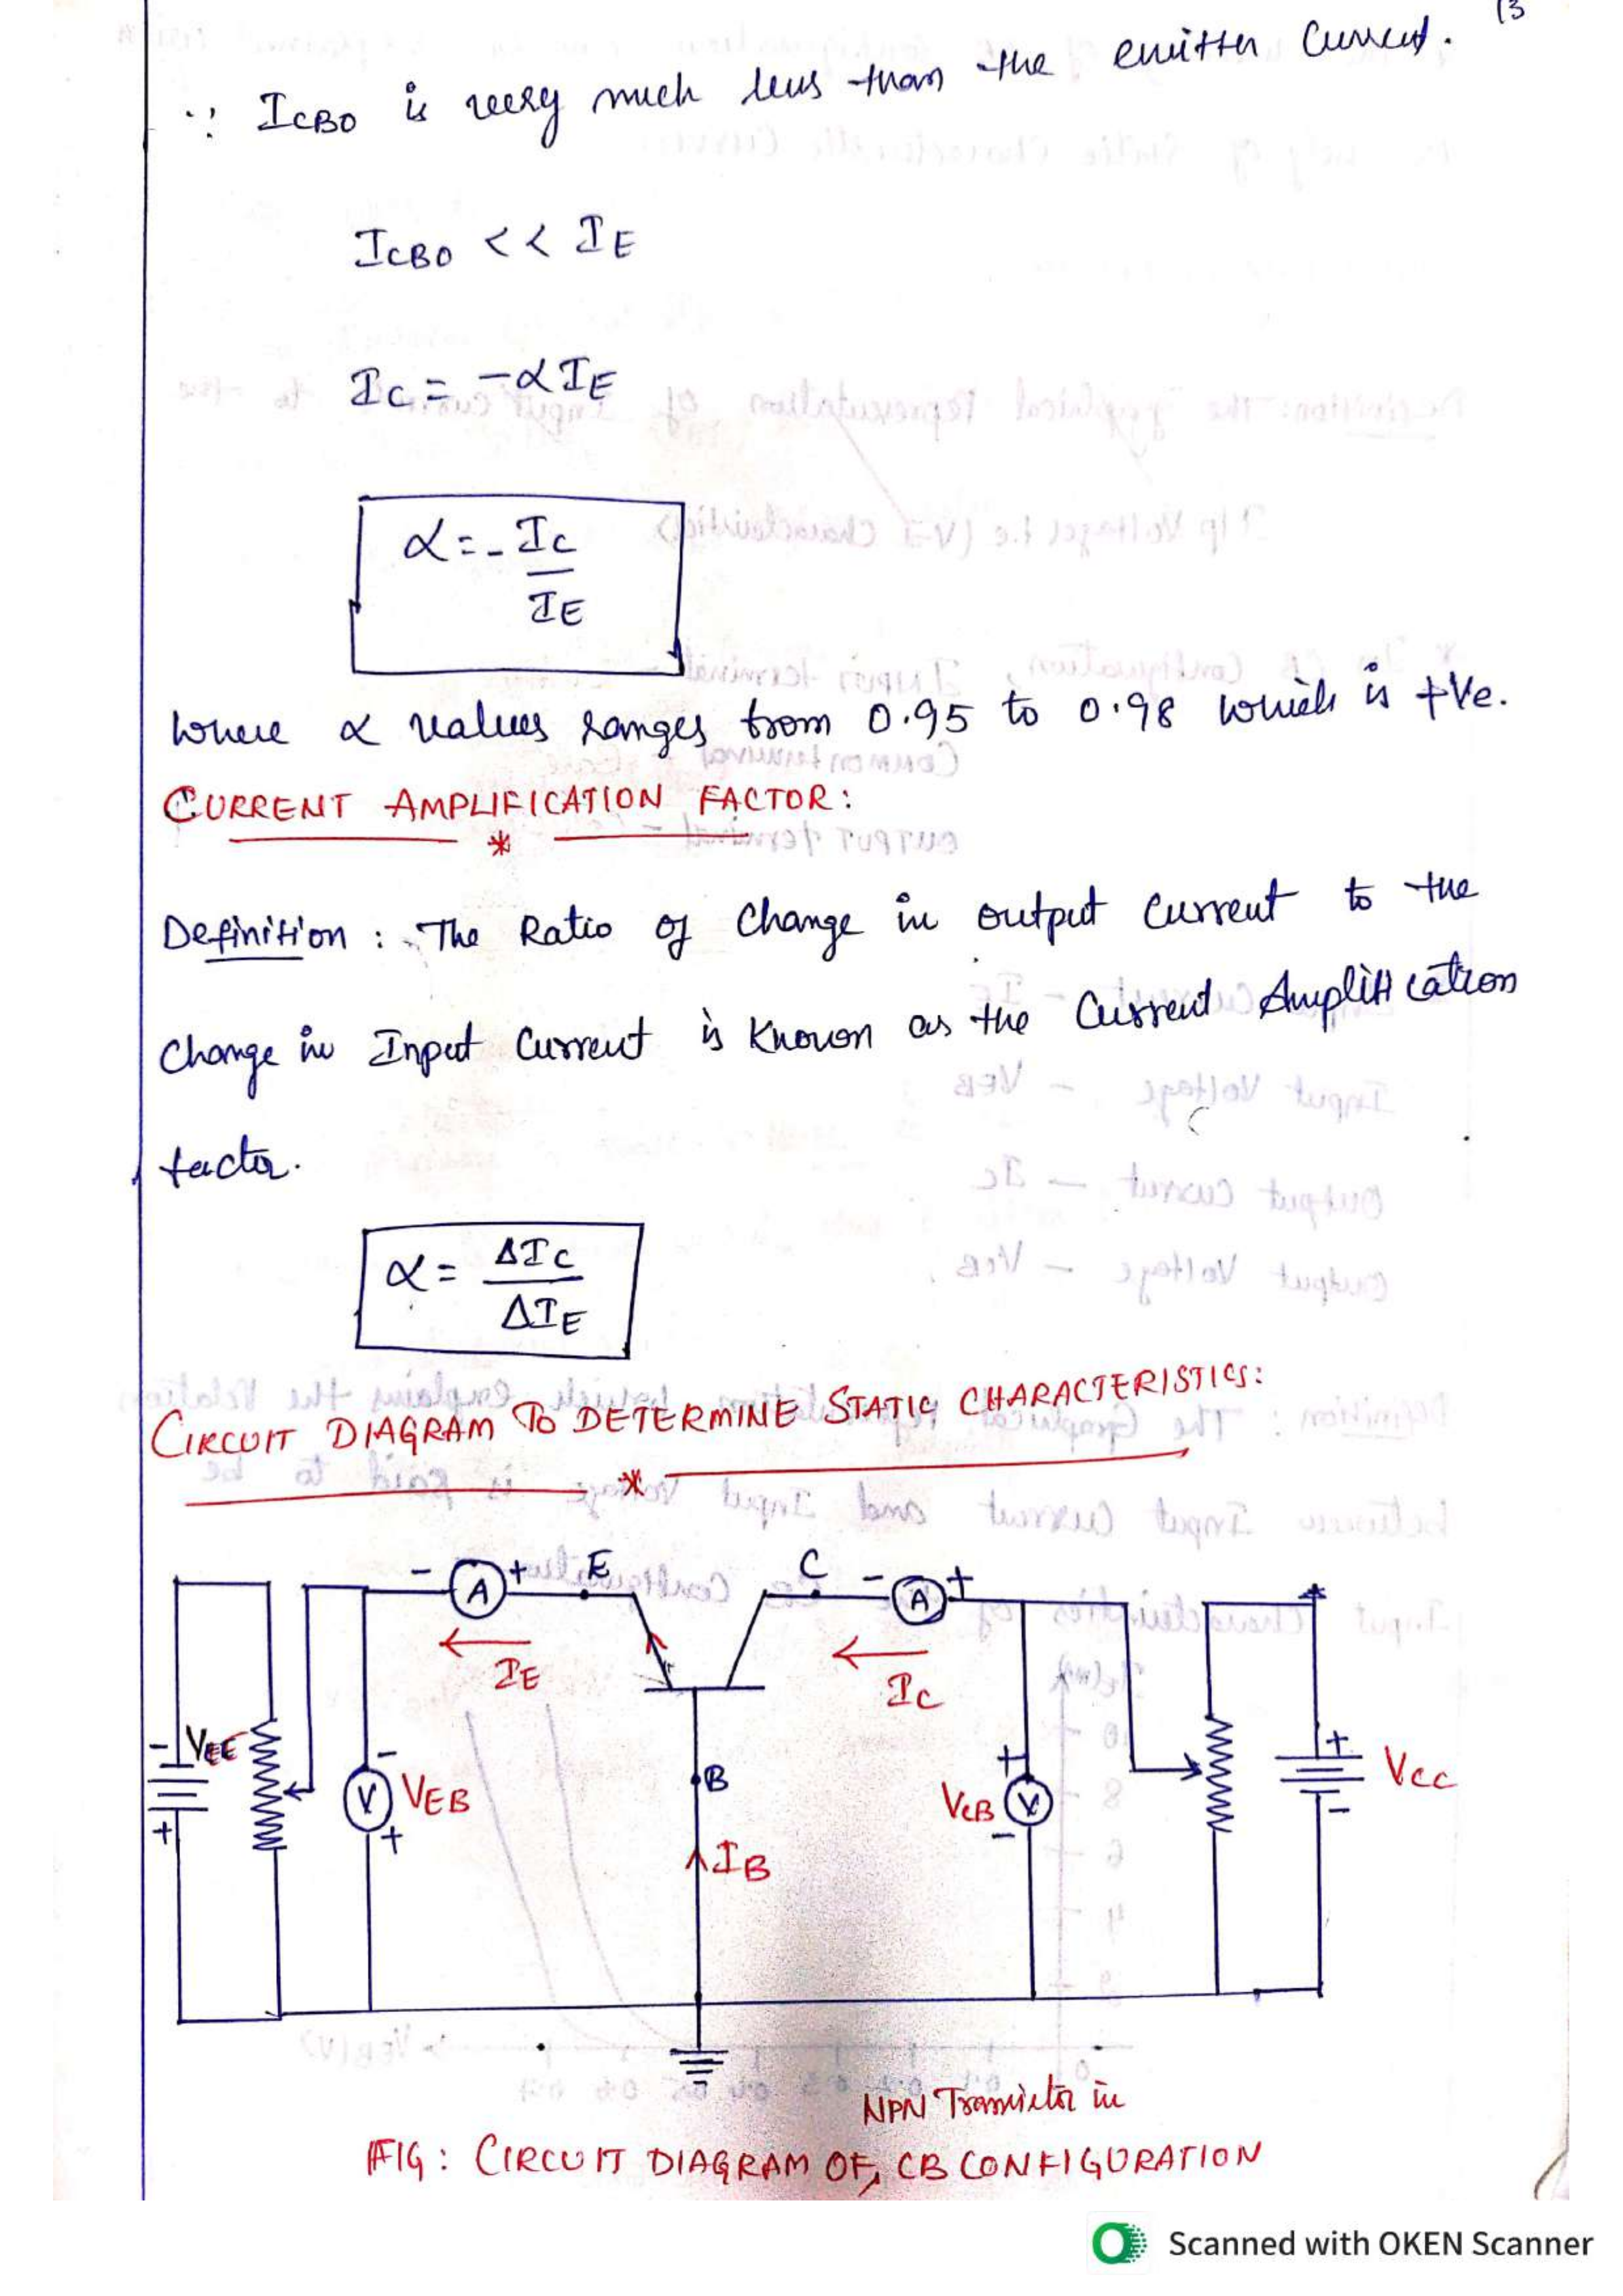 13
∵ ICBO is very much less than the emitter current.
ICBO << IE
IC = -αIE
α = - IC / IE
where α values ranges from 0.95 to 0.98 which is +ve.
CURRENT AMPLIFICATION FACTOR:
*
Definition : The Ratio of Change in output current to the
Change in Input current is known as the Current Amplification
factor.
α = ΔIC / ΔIE
CIRCUIT DIAGRAM TO DETERMINE STATIC CHARACTERISTICS:
*
- A + E C - A +
IE IC
- VEE + - V + VEB B VCB + V - + VCC -
IB
NPN Transistor in
FIG : CIRCUIT DIAGRAM OF, CB CONFIGURATION
Scanned with OKEN Scanner